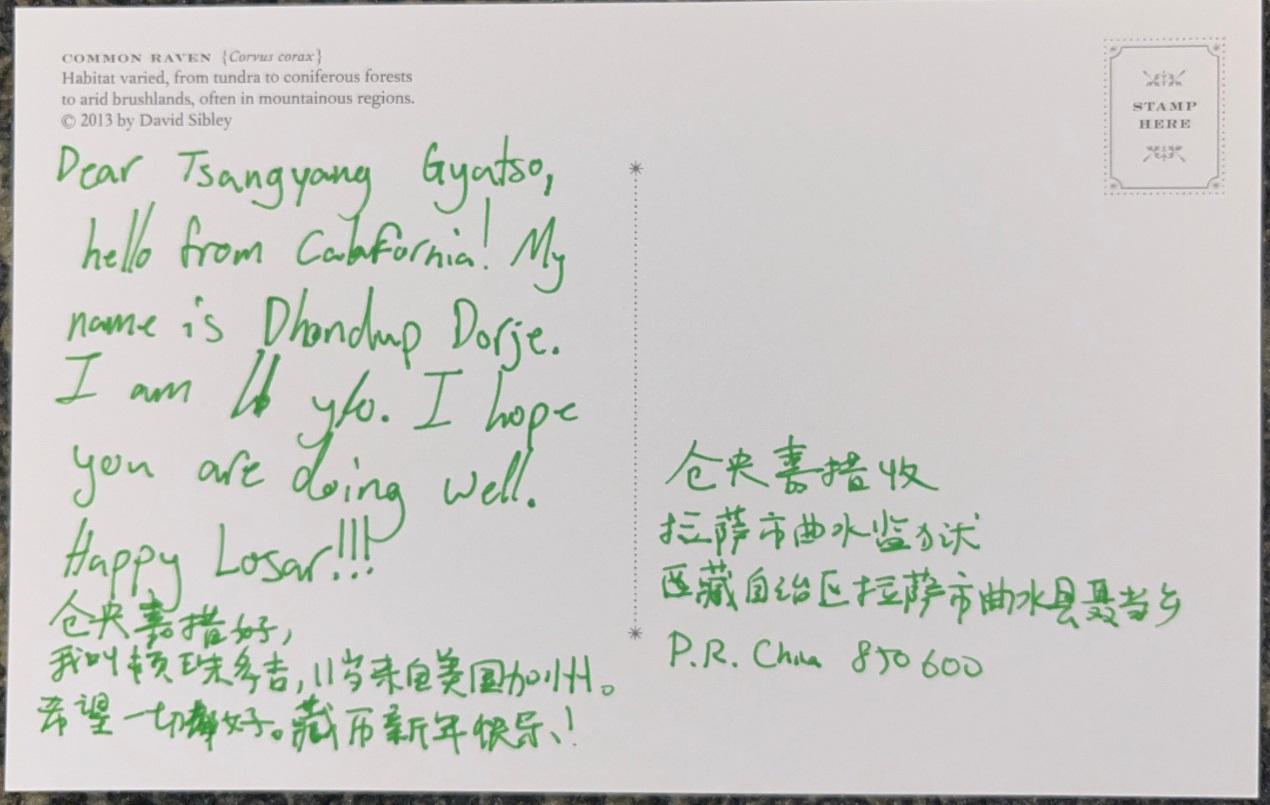 COMMON RAVEN {Corvus corax}
Habitat varied, from tundra to coniferous forests
to arid brushlands, often in mountainous regions.
© 2013 by David Sibley
Dear Tsangyang Gyatso,
hello from California! My
name is Dhondup Dorje.
I am 11 y/o. I hope
you are doing well.
Happy Losar!!!
仓央嘉措好,
我叫顿珠多吉,11岁来自美国加州。
希望一切都好。藏历新年快乐!
STAMP
HERE
仓央嘉措收
拉萨市曲水监狱
西藏自治区拉萨市曲水县聂当乡
P.R. China 850600